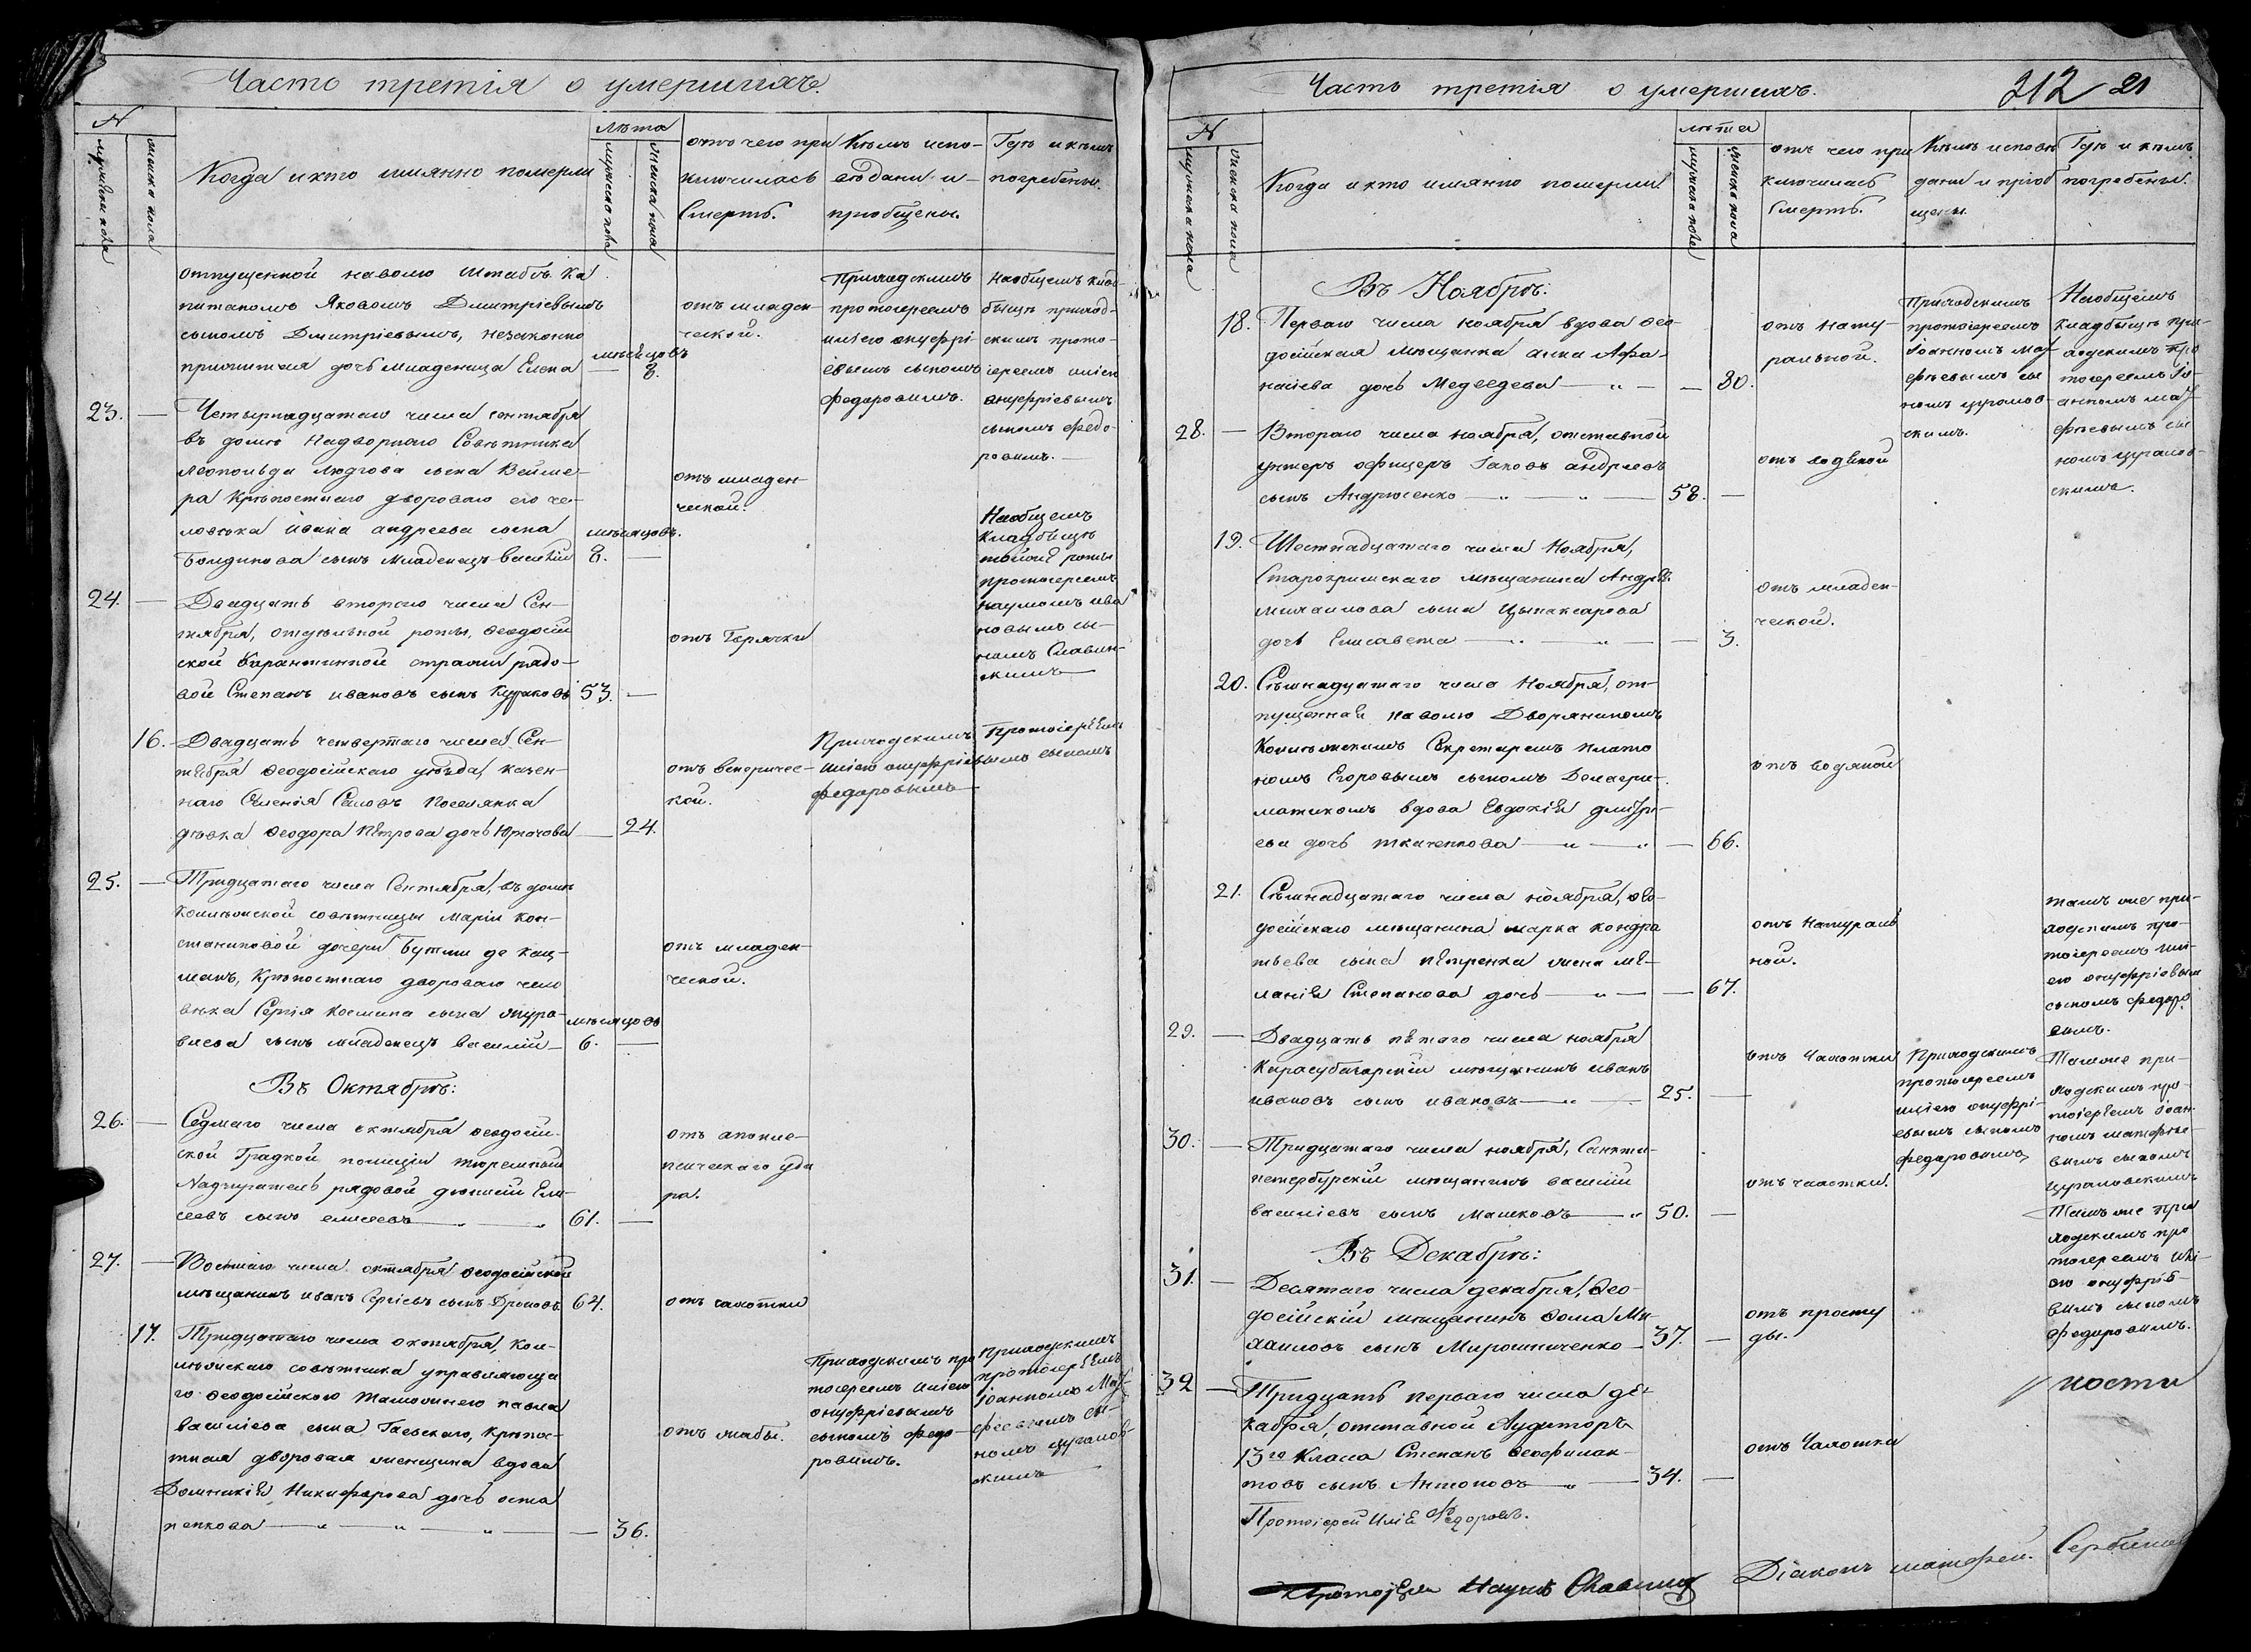 Часть третія о умершихъ.
№
мужеска пола
женска пола
Когда и кто имянно померли
Лѣта
мужеска пола
женска пола
отъ чего при
ключилась
Смерть.
Кѣмъ испо-
вѣданы и
приобщены.
Гдѣ и кѣмъ
погребены.
отпущенной наволю Штабсъ Ка
питаномъ Яковомъ Дмитріевымъ
сыномъ Дмитріевымъ, незаконно
прижитая дочь младеница Елена
мѣсяцовъ
8.
отъ младен
ческой.
Приходскимъ
протоіереемъ
иліею онуфрі
евымъ сыномъ
федоровымъ.
Наобщемъ клад
бищѣ приход-
скимъ прото-
іереемъ иліею
онуфріевымъ
сыномъ федо-
ровымъ.
23.
Четырнадцатаго числа сентября
въ домѣ Надворнаго Совѣтника
Леопольда людгова сына Вейме-
ра крѣпостнаго двороваго его че-
ловѣка ивана андреева сына
Болдинова сынъ младенецъ василій
мѣсяцовъ.
8.
отъ младен-
ческой.
Наобщемъ
кладбищѣ
тойже роты
протоіереемъ
наумомъ ива
новымъ сы-
номъ Славин-
скимъ
24.
Двадцать втораго числа Сен-
тября, отдѣльной роты, Ѳеодосій
ской Карантинной стражи рядо-
вой Степанъ ивановъ сынъ
53.
отъ Горячки
16.
Двадцать четвертаго числа Сен-
тября Ѳеодосійскаго уѣзда, казен-
наго Селенія Саловъ поселянка
дѣвка Ѳеодора Петрова дочь
24.
отъ венеричес-
кой.
Приходскимъ Протоіереемъ
иліею онуфріевымъ сыномъ
федоровымъ
25.
Тридцатаго числа Сентября, въ домѣ
Колежской совѣтницы Маріи Кон-
стантиновой дочери Бутми де Кац-
манъ, Крѣпостнаго двороваго чело
вѣка Сергія Космина сына жура-
влева сынъ младенецъ василій
мѣсяцовъ
6.
отъ младен-
ческой.
Въ Октябрѣ:
26.
Седмаго числа октября Ѳеодосій-
ской Градкой полиціи тюремный
Надзиратель рядовой дюнисій Ели-
сеевъ сынъ елисеевъ
61.
отъ апопле-
пическаго уда
ра.
27.
Восмаго числа октября Ѳеодосійской
мѣщанинъ иванъ Сергіевъ сынъ Дроновъ.
64.
отъ чахотки
17.
Тридцатаго числа октября, Кол-
лежскаго совѣтника управляюща
го Ѳеодосійскою таможнею павла
василіева сына Гаевскаго, Крѣпос-
тная дворовая женщина вдова
Домникія Никифорова дочь оста
пенкова
36.
отъ жабы.
Приходскимъ про
тоіереемъ иліею
онуфріевымъ
сыномъ федо-
ровымъ.
Приходскимъ
протоіереемъ
іоанномъ Мат
фѣевымъ сы-
номъ цугалов-
скимъ
Часть третія о умершихъ.
212 21
№
мужеска пола
женска пола
Когда и кто имянно померли
лѣта
мужеска пола
женска пола
отъ чего при
ключилась
Смерть.
Кѣмъ исповѣ
даны и пріоб
щены.
Гдѣ и кѣмъ
погребены.
Въ Ноябрѣ:
18.
Перваго числа ноября вдова Ѳео-
досійская мѣщанка анна Афа-
насіева дочь Медведева
80.
отъ нату-
ральной.
Приходскимъ
протоіереемъ
іоанномъ мат
фѣевымъ сы
номъ цугалов-
скимъ.
Наобщемъ
кладбищѣ при-
ходскимъ про
тоіереемъ іо-
анномъ мат
фѣевымъ сы
номъ цугалов-
скимъ.
28.
Втораго числа ноября, отставной
унтеръ офицеръ Іаковъ андреевъ
сынъ Андрюсенко
58.
отъ водяной
19.
Шестнадцатаго числа Ноября,
Старокримскаго мѣщанина Андрѣя
михаилова сына
дочь Елисавета
3.
отъ младен-
ческой.
20.
Сѣмнадцатаго числа Ноября, от-
пущенная наволю Дворяниномъ
Колежскимъ Секретаремъ Плато
номъ Егоровымъ сыномъ Делагра-
матикомъ вдова Евдокія дмитрі-
ева дочь ткаченкова
66.
отъ водяной
21.
Сѣмнадцатаго числа ноября, Ѳео-
досійскаго мѣщанина марка кондра
тьева сына петренка жена ме-
ланія Степанова дочь
67.
отъ натураль
ной.
тамъ же при-
ходскимъ про-
тоіереемъ илі-
ею онуфріевымъ
сыномъ федоро
вымъ.
29.
Двадцать пятаго числа ноября
Карасубазарскій мѣщанинъ иванъ
ивановъ сынъ ивановъ
25.
отъ Чахотки
Приходскимъ
протоіереемъ
иліею онуфрі-
евымъ сыномъ
федоровымъ
Тамже при-
ходскимъ про-
тоіереемъ іоан-
номъ матфѣе-
вымъ сыномъ
цугаловскимъ
30.
Тридцатаго числа ноября, Санкти-
петербурскій мѣщанинъ василій
василіевъ сынъ Машковъ
50.
отъ чахотки.
Тамъ же при
ходскимъ про
тоіереемъ илі-
ею онуфріе-
вымъ сыномъ
федоровымъ.
Въ Декабрѣ:
31.
Десятаго числа декабря, Ѳео-
досійскій мѣщанинъ Ѳома Ми
хаиловъ сынъ Мирошниченко
37.
отъ просту
ды.
32
Тридцать перваго числа де-
кабря, отставной Аудиторъ
13го Класа Степанъ Ѳеофилак-
товъ сынъ Антоновъ
34.
отъ Чахотки
Протоіерей Илія Федоровъ.
Протоіерей Наумъ Славинск
Діаконъ матфей.